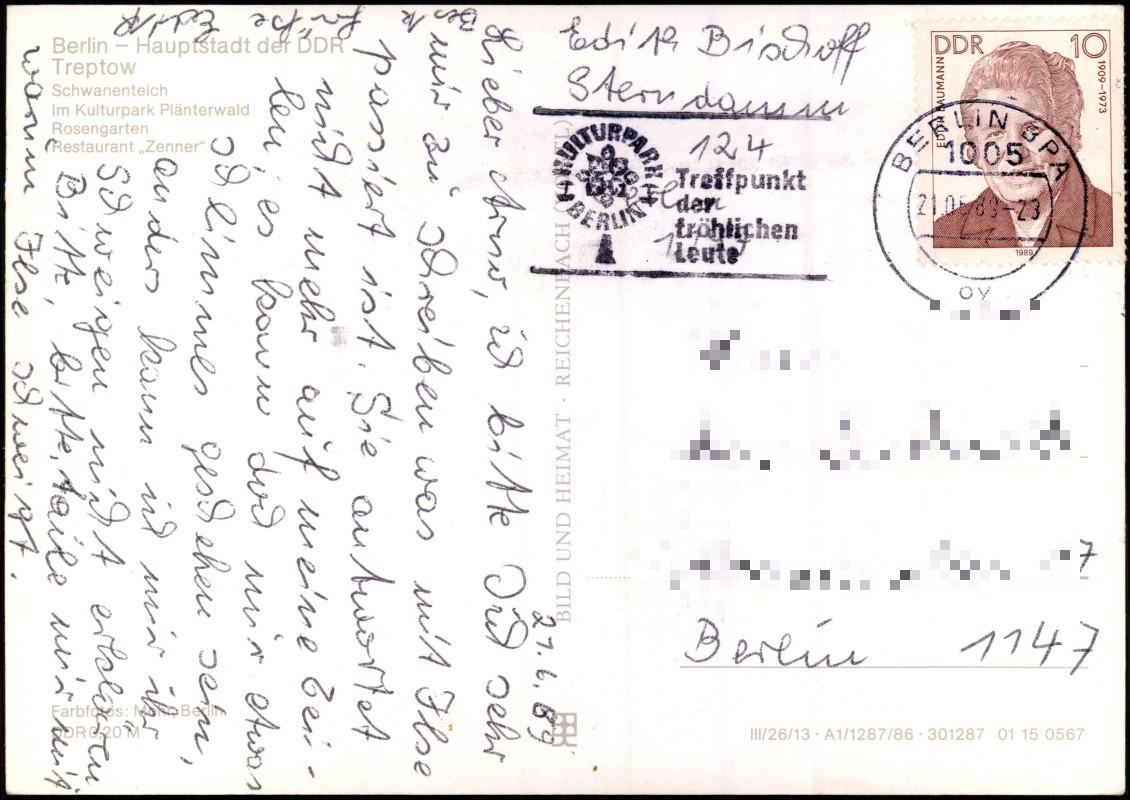 Berlin – Hauptstadt der DDR
Treptow
Schwanenteich
Im Kulturpark Plänterwald
Rosengarten
Restaurant „Zenner“
Edith Bischoff
Sterndamm
124
Berlin
KULTURPARK
BERLIN
Treffpunkt
der
fröhlichen
Leute
DDR 10
EDITH BAUMANN 1909–1973
1989
BERLIN BPA
1005
21.6.89
Lieber Arno, ich bitte Dich sehr
mir zu schreiben was mit Ilse
passiert ist. Sie antwortet
nicht mehr auf meine Zei-
len, es kann doch nur etwas
Schlimmes geschehen sein,
anders kann ich mir ihr
Schweigen nicht erklären
Bitte, bitte, teile mir mit
warum Ilse schweigt.
Edith
BILD UND HEIMAT · REICHENBACH
7
Berlin 1147
Farbfotos: Mohr, Berlin
DDR 0,20 M
III/26/13 · A1/1287/86 · 301287 01 15 0567